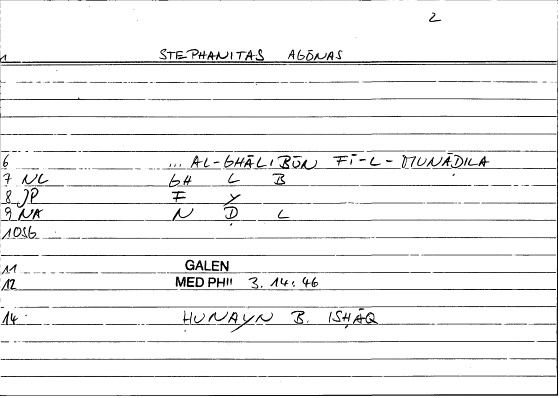 2
1 STEPHANITAS AGŌNAS
6 ... AL-GHĀLIBŪN FĪ-L-MUNĀḌILA
7 NL GH L B
8 JP F Y
9 NA N Ḍ L
10SG
11 GALEN
12 MED PHIL 3.14:46
14 ḤUNAYN B. ISḤĀQ